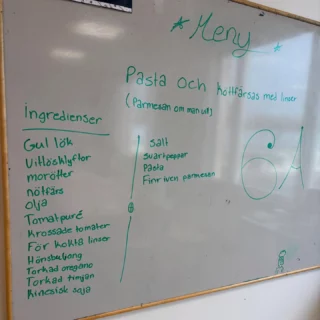 Meny
Pasta och köttfärsås med linser
(Parmesan om man vill)
ingredienser
Gul lök
Vitlöksklyftor
morötter
nötfärs
Olja
Tomatpuré
Krossade tomater
För kokta linser
Hönsbuljong
Torkad oregano
Torkad timjan
Kinesisk soja
Salt
Svartpeppar
Pasta
Finriven parmesan
6A